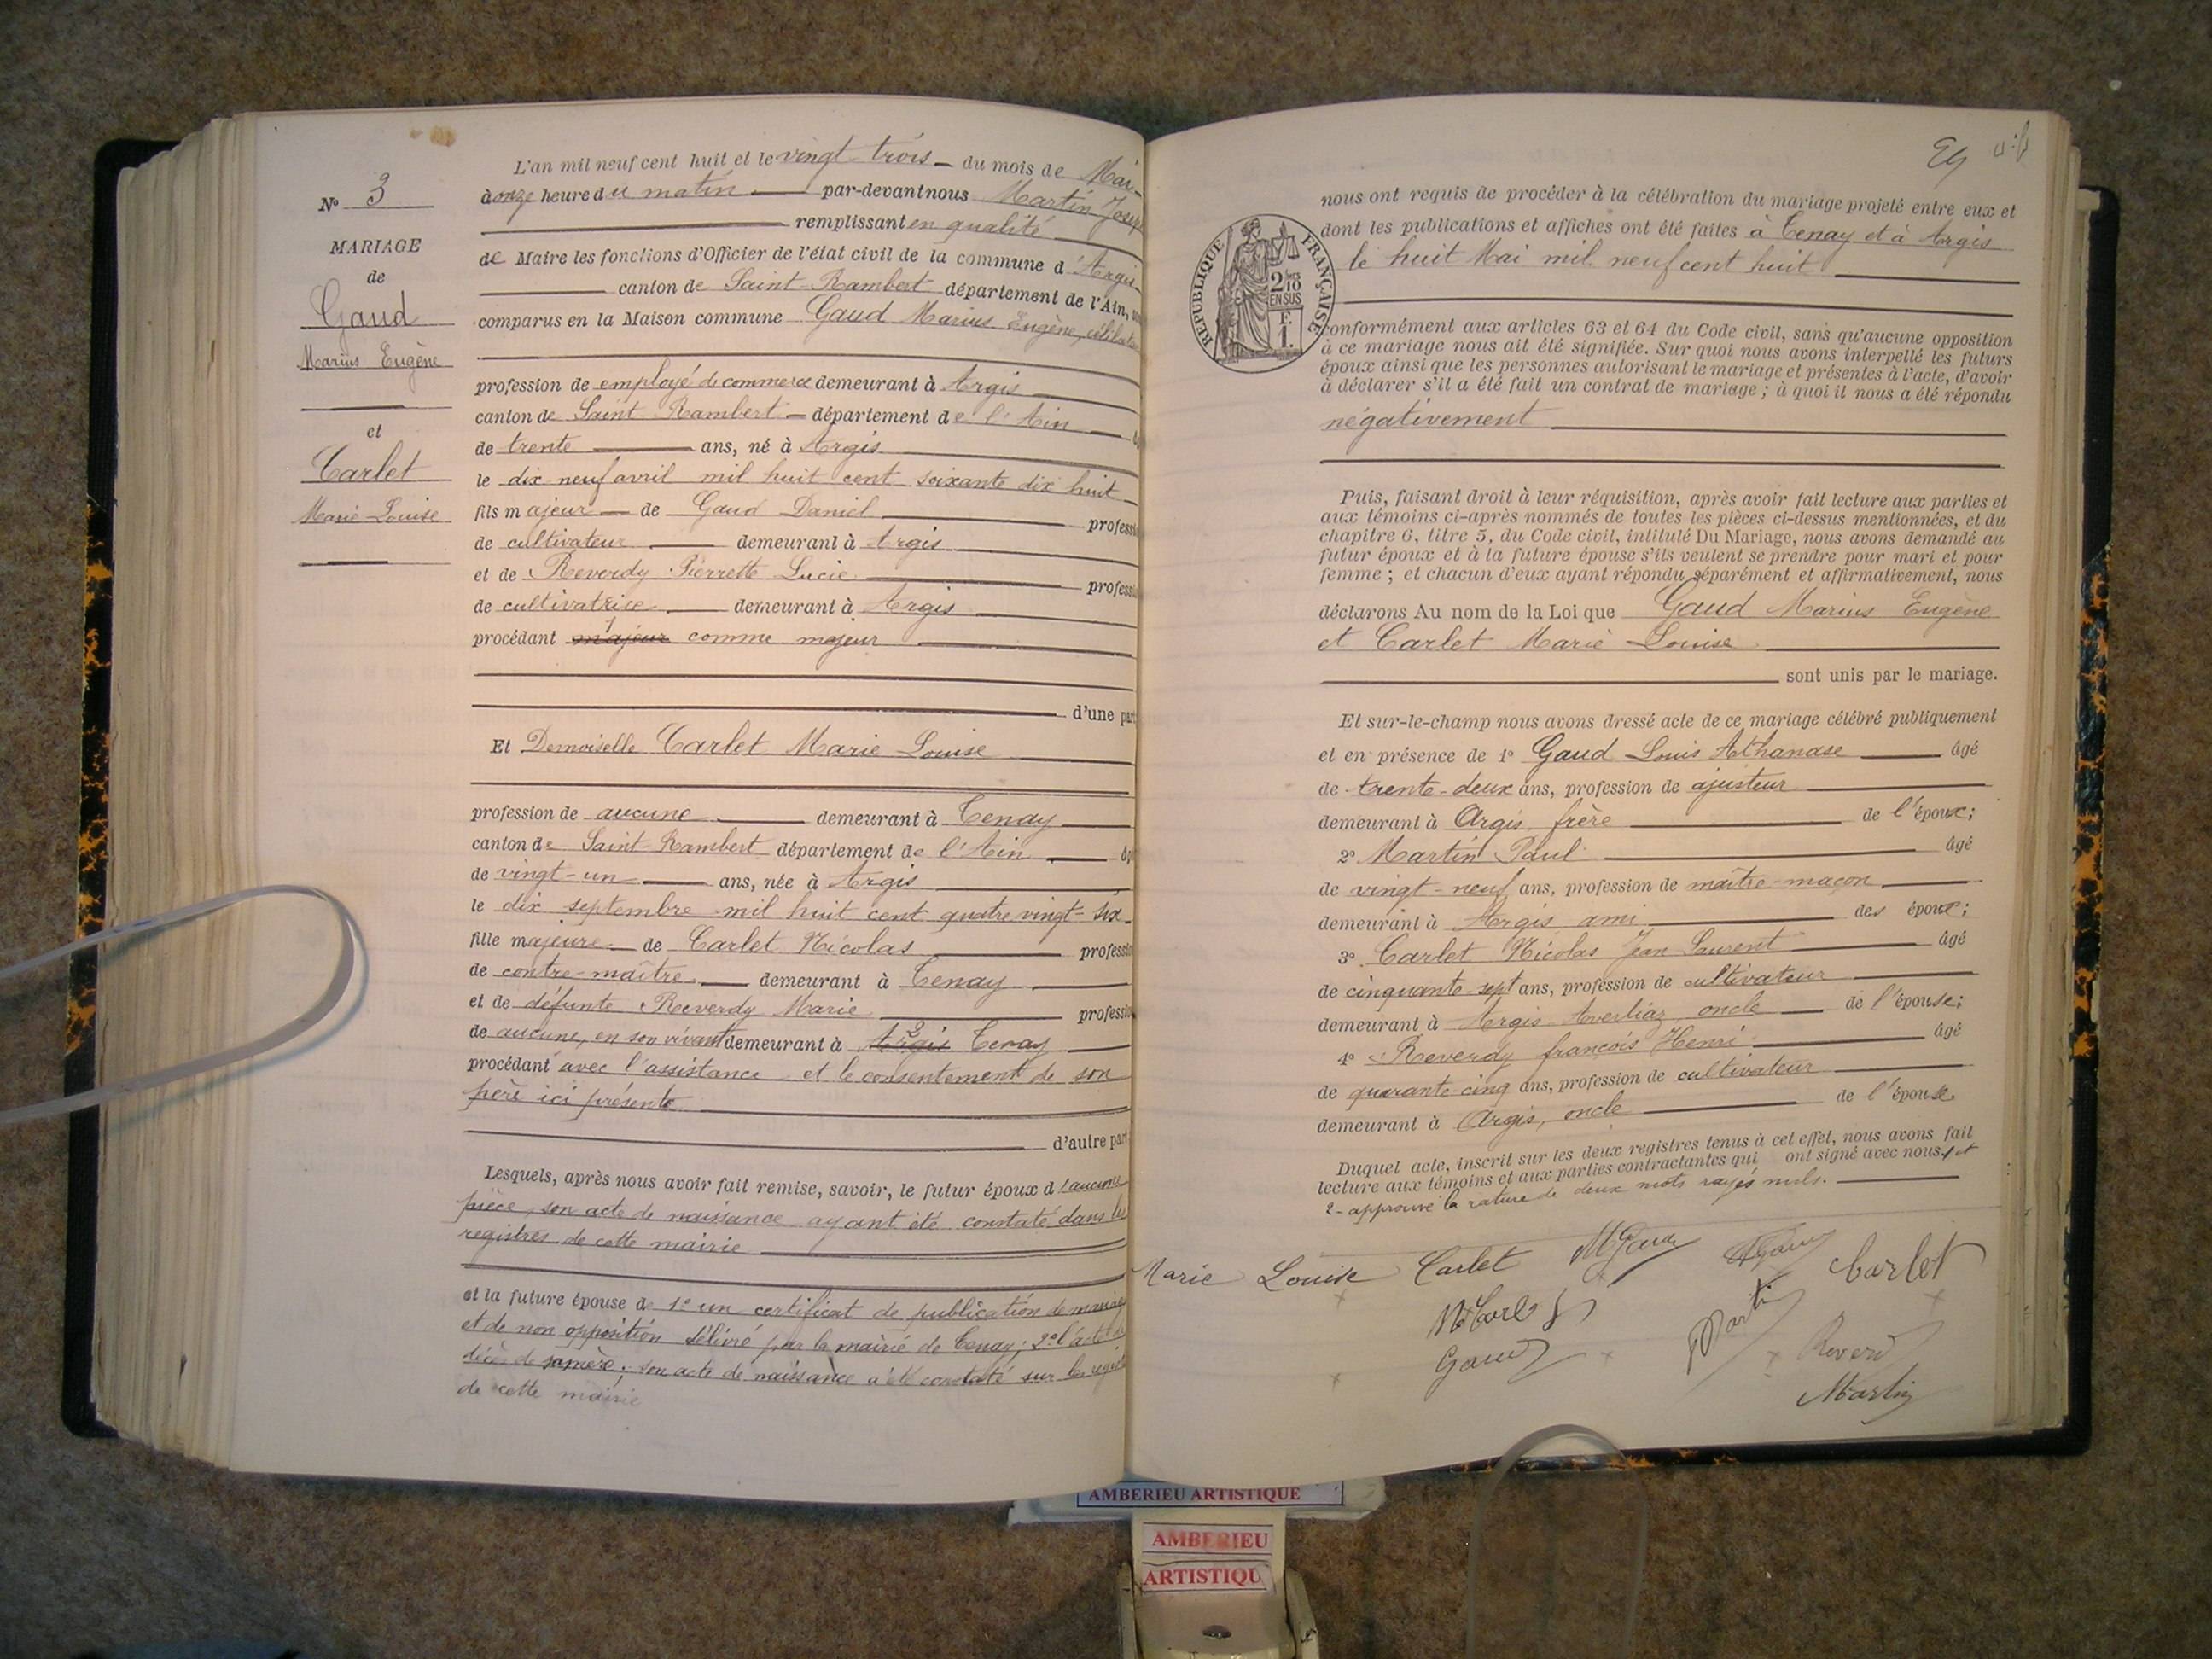 L'an mil neuf cent huit et le vingt trois du mois de Mai
à onze heure du matin par-devant nous Martin Josep
remplissant en qualité
de Maire les fonctions d'Officier de l'état civil de la commune d'Argis
canton de Saint-Rambert département de l'Ain,
comparus en la Maison commune Gaud Marius Eugène, célibat
profession de employé de commerce demeurant à Argis
canton de Saint Rambert département de l'Ain
de trente ans, né à Argis
le dix neuf avril mil huit cent soixante dix huit
fils majeur de Gaud Daniel profess
de cultivateur demeurant à Argis
et de Reverdy Pierrette Lucie professi
de cultivatrice demeurant à Argis
procédant majeur comme majeur
d'une par
N° 3
MARIAGE
de
Gaud
Marius Eugène
et
Carlet
Marie Louise
Et Demoiselle Carlet Marie Louise
profession de aucune demeurant à Tenay
canton de Saint-Rambert département de l'Ain âg
de vingt-un ans, née à Argis
le dix septembre mil huit cent quatre vingt-six
fille majeure de Carlet Nicolas profession
de contre-maître demeurant à Tenay
et de défunte Reverdy Marie professi
de aucune, en son vivant demeurant à Argis 2 Tenay
procédant avec l'assistance et le consentement de son
père ici présente
d'autre part
Lesquels, après nous avoir fait remise, savoir, le futur époux d'aucune
pièce, son acte de naissance ayant été constaté dans les
registres de cette mairie
et la future épouse de 1° un certificat de publication de mariage
et de non opposition délivré par la mairie de Tenay; 2° l'acte de
décès de sa mère; son acte de naissance a été constaté sur les regist
de cette mairie
nous ont requis de procéder à la célébration du mariage projeté entre eux et
dont les publications et affiches ont été faites à Tenay et à Argis
le huit Mai mil neuf cent huit
REPUBLIQUE FRANÇAISE
2/10
EN SUS
F.
1.
conformément aux articles 63 et 64 du Code civil, sans qu'aucune opposition
à ce mariage nous ait été signifiée. Sur quoi nous avons interpellé les futurs
époux ainsi que les personnes autorisant le mariage et présentes à l'acte, d'avoir
à déclarer s'il a été fait un contrat de mariage ; à quoi il nous a été répondu
négativement
Puis, faisant droit à leur réquisition, après avoir fait lecture aux parties et
aux témoins ci-après nommés de toutes les pièces ci-dessus mentionnées, et du
chapitre 6, titre 5, du Code civil, intitulé Du Mariage, nous avons demandé au
futur époux et à la future épouse s'ils veulent se prendre pour mari et pour
femme ; et chacun d'eux ayant répondu séparément et affirmativement, nous
déclarons Au nom de la Loi que Gaud Marius Eugène
et Carlet Marie Louise
sont unis par le mariage.
Et sur-le-champ nous avons dressé acte de ce mariage célébré publiquement
et en présence de 1° Gaud Louis Athanase âgé
de trente-deux ans, profession de ajusteur
demeurant à Argis frère de l'époux;
2° Martin Paul âgé
de vingt-neuf ans, profession de maître-maçon
demeurant à Argis ami des époux;
3° Carlet Nicolas Jean Laurent âgé
de cinquante-sept ans, profession de cultivateur
demeurant à Argis Averliaz, oncle de l'épouse;
4° Reverdy françois Henri âgé
de quarante cinq ans, profession de cultivateur
demeurant à Argis, oncle de l'épouse
Duquel acte, inscrit sur les deux registres tenus à cet effet, nous avons fait
lecture aux témoins et aux parties contractantes qui ont signé avec nous 1 et
2 - approuvé la rature de deux mots rayés nuls.
Marie Louise Carlet MGaud Gaud Carlet
Gaud PMartin Reverdy
Martin
AMBERIEU ARTISTIQUE
AMBERIEU
ARTISTIQU